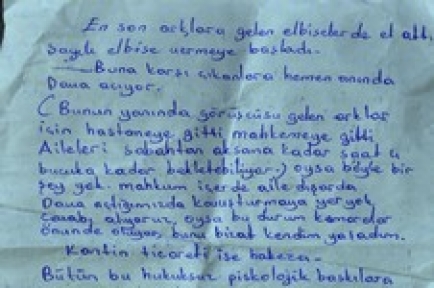 En son arklara gelen elbiselerde el altı
sayılı elbise vermeye başladı.
Buna karşı çıkanlara hemen anında
Dava açıyor.
( Bunun yanında görüşcüsü gelen arklar
için hastaneye gitti mahkemeye gitti
Aileleri sabahtan aksama kadar saat
bucuka kadar bekletebiliyor.) oysa böyle bir
şey yok. mahkum içerde aile dışarda
Dava açtığımızda kovuşturmaya yer yok
cavabı alıyoruz, oysa bu durum kameralar
önünde oluyor, bunu bizat kendim yaşadım.
Kantin ticareti ise hakeza.
Bütün bu hukuksuz piskolojik baskılara